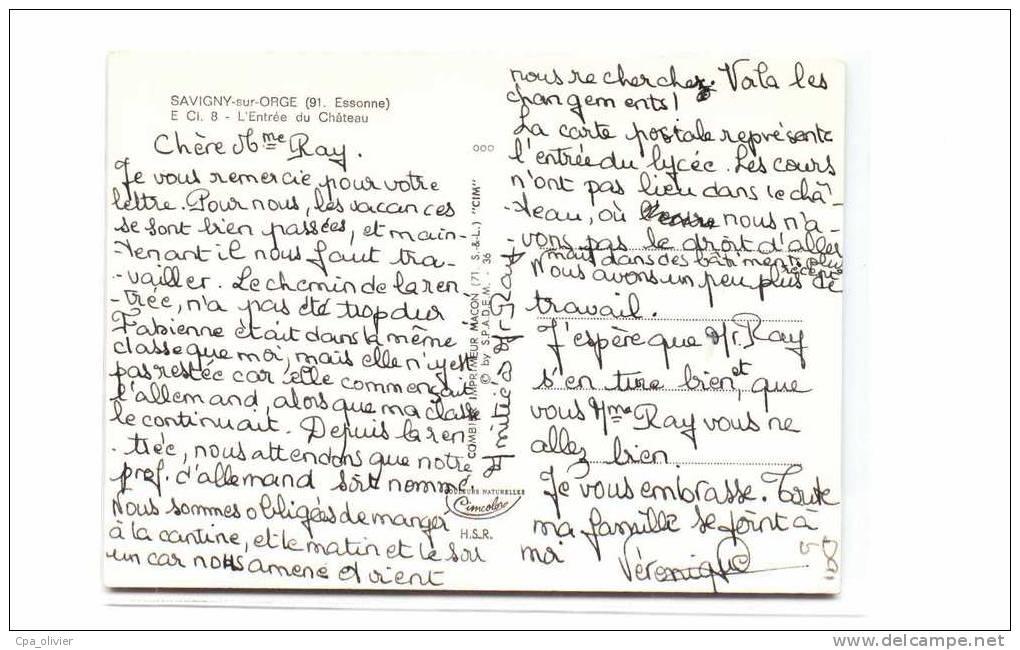 SAVIGNY-sur-ORGE (91. Essonne)
E Ci. 8 - L'Entrée du Château
Chère Mme Ray.
Je vous remercie pour votre
lettre. Pour nous, les vacances
se sont bien passées, et main-
-tenant il nous faut tra-
-vailler. Le chemin de la ren
-trée, n'a pas été trop dur
Fabienne était dans la même
classe que moi, mais elle n'y est
pas restée car elle commençait
l'allemand, alors que ma classe
le continuait. Depuis la ren
-trée, nous attendons que notre
prof. d'allemand soit nommé.
Nous sommes obligées de manger
à la cantine, et le matin et le soir
un car nous amène et vient
COMBIER IMPRIMEUR MACON (71. S.-&-L.) "CIM"
© by S.P.A.D.E.M. - 36
Amitiés à Mr Ray
COULEURS NATURELLES
Cimcolor
H.S.R.
nous rechercher. Voila les
changements!
La carte postale représente
l'entrée du lycée. Les cours
n'ont pas lieu dans le châ-
-teau, où nous n'a-
-vons pas le droit d'aller
mais dans des bâtiments plus
récent
Nous avons un peu plus de
travail.
J'espère que Mr. Ray
s'en tire bien, et que
vous Mme Ray vous ne
allez bien.
Je vous embrasse. Toute
ma famille se joint à
moi
Véronique
Cpa_olivier
www.delcampe.net